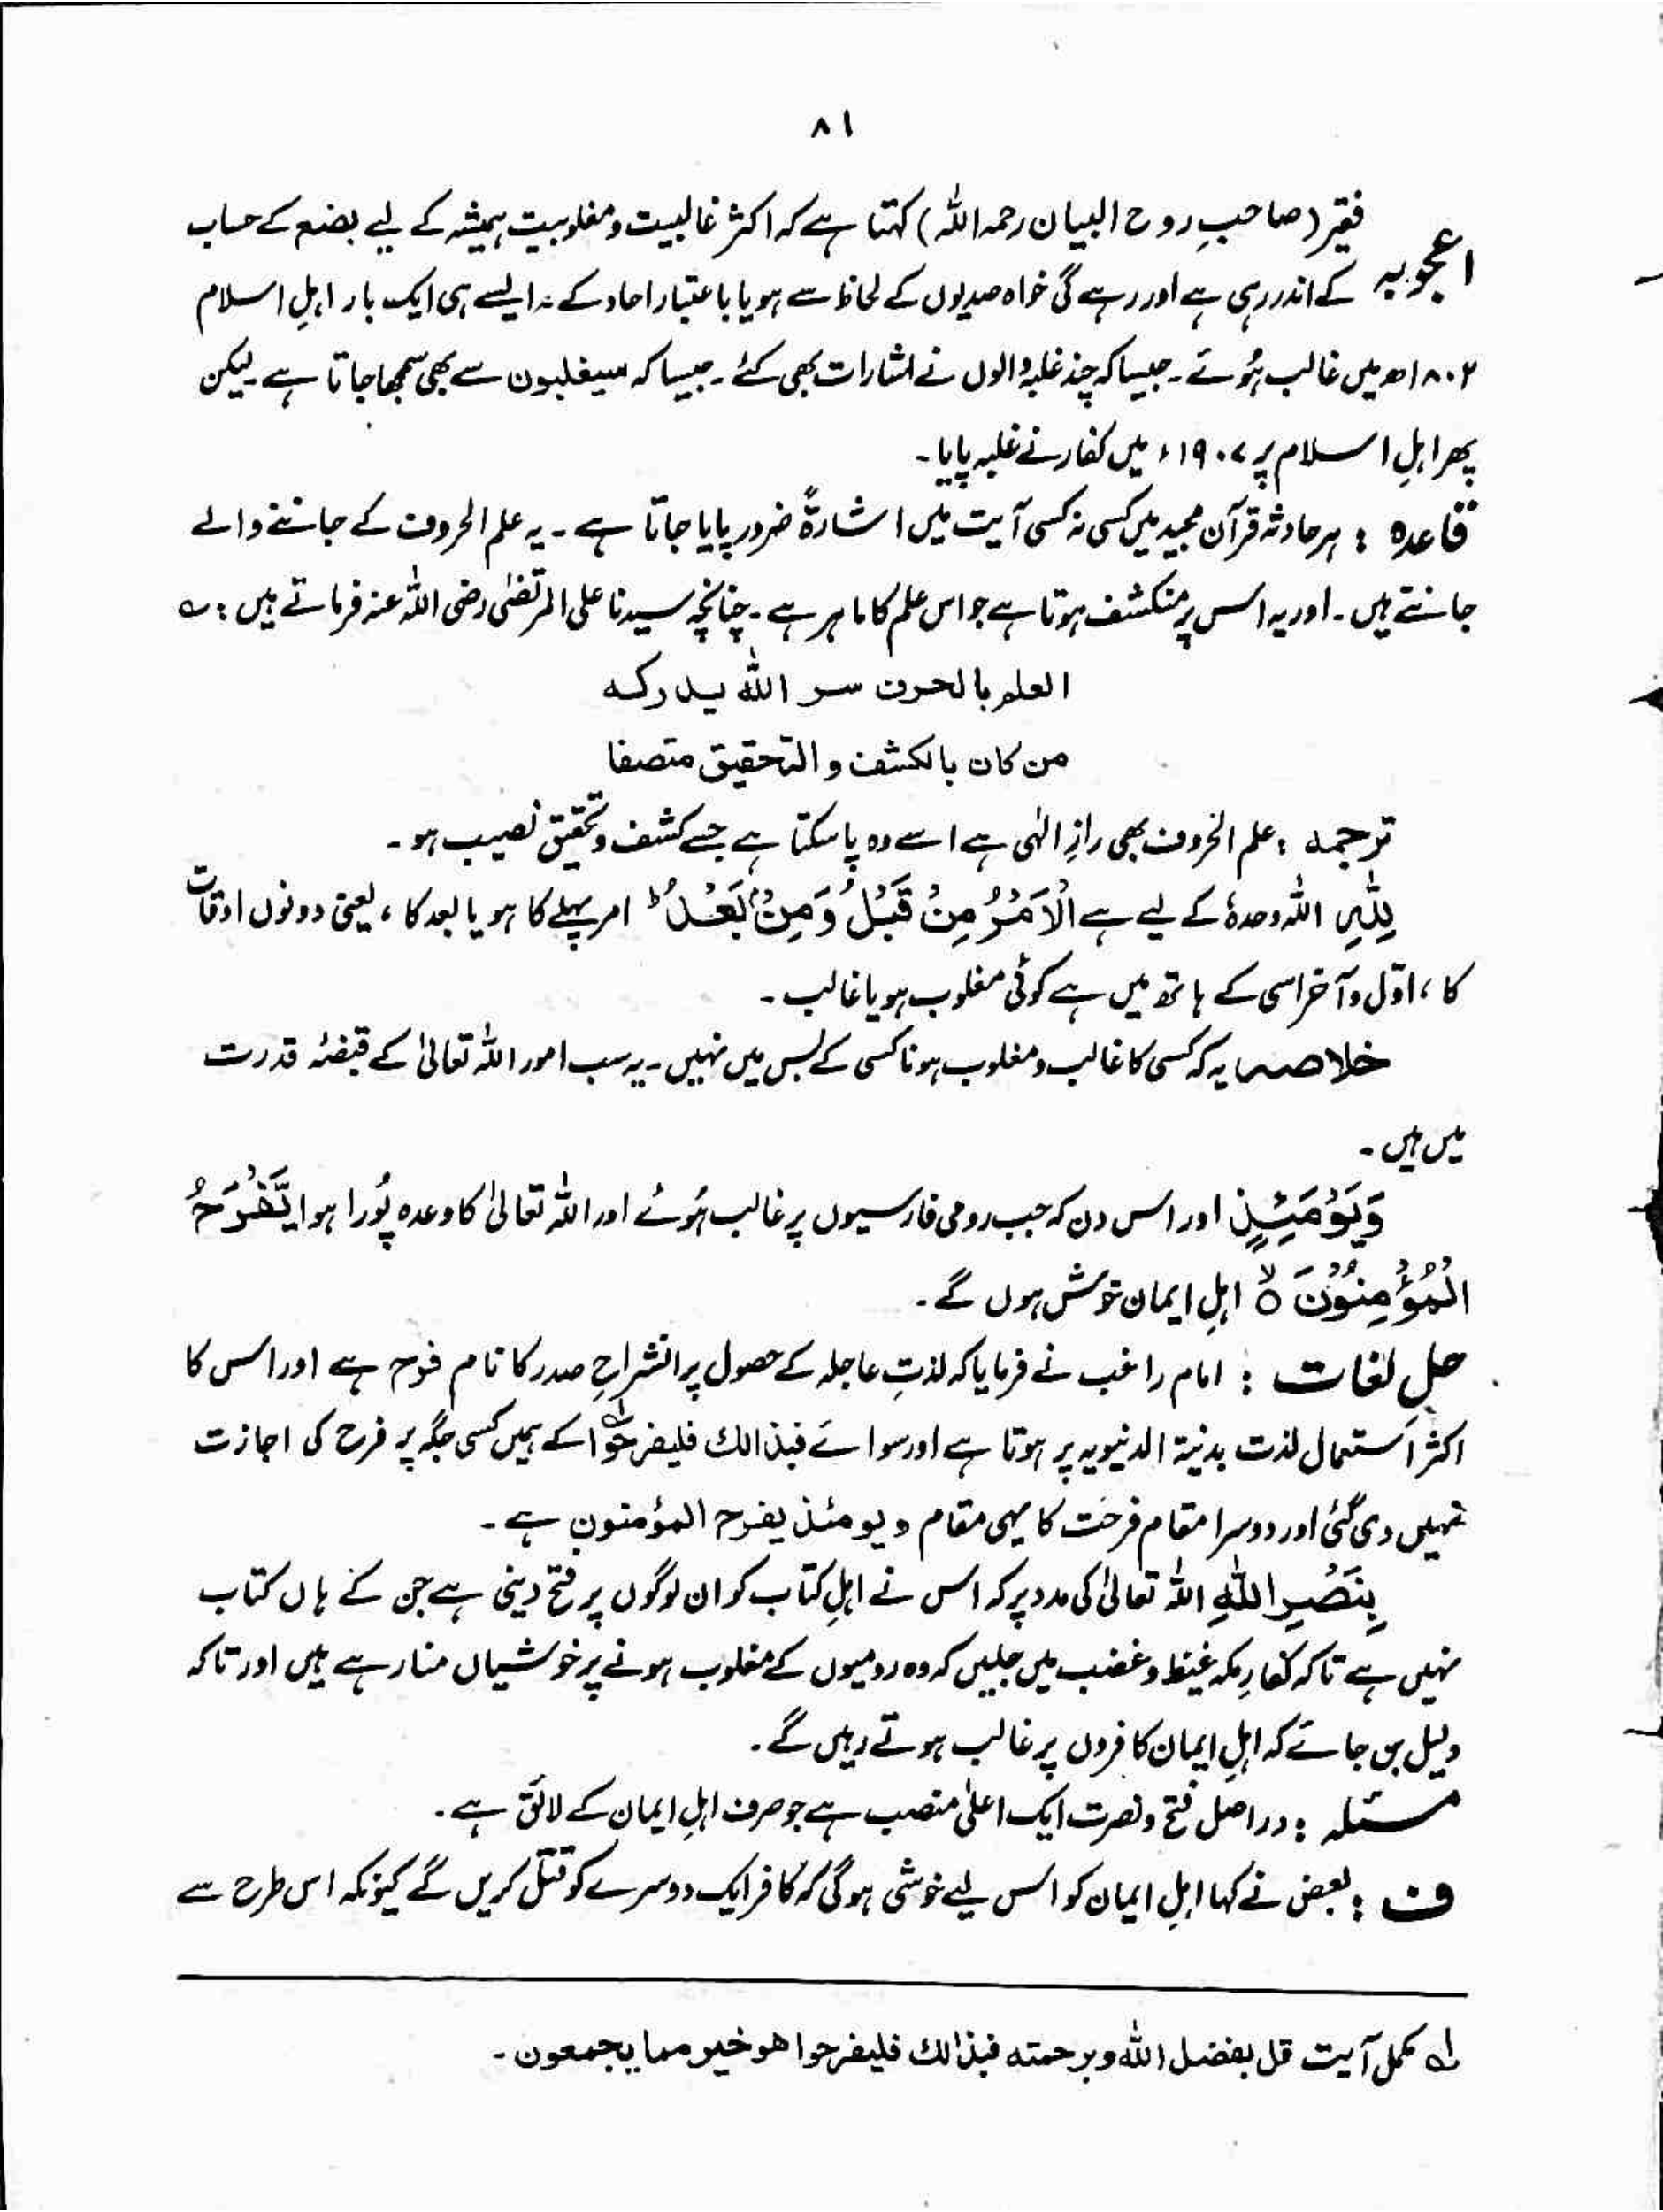 ۸۱
فقیر (صاحبِ روح البیان رحمہ اللہ) کہتا ہے کہ اکثر غالبیت و مغلوبیت ہمیشہ کے لیے بضع کے حساب
اعجوبہ کے اندر رہی ہے اور رہے گی خواہ صدیوں کے لحاظ سے ہو یا باعتبار احاد کے ۔ ایسے ہی ایک بار اہلِ اسلام
۱۸۰۲ھ میں غالب ہُوئے ۔ جیسا کہ چند غلبہ والوں نے اشارات بھی کئے ۔ جیسا کہ سیغلبون سے بھی سمجھا جاتا ہے ۔ لیکن
پھر اہلِ اسلام پر ۱۹۰۷ء میں کفار نے غلبہ پایا ۔
قاعدہ : ہر حادثہ قرآن مجید میں کسی نہ کسی آیت میں اشارۃً ضرور پایا جاتا ہے ۔ یہ علم الحروف کے جاننے والے
جانتے ہیں ۔ اور یہ اس پر منکشف ہوتا ہے جو اس علم کا ماہر ہے ۔ چنانچہ سیدنا علی المرتضٰی رضی اللہ عنہ فرماتے ہیں : ؎
العلم بالحرف سر اللہ یدرکہ
من کان بالکشف و التحقیق متصفا
ترجمہ : علم الحروف بھی رازِ الٰہی ہے اسے وہ پا سکتا ہے جسے کشف و تحقیق نصیب ہو ۔
لِلّٰہِ اللہ وحدہٗ کے لیے ہے الْاَمْرُ مِنْ قَبْلُ وَمِنْۢ بَعْدُ ؕ امر پہلے کا ہو یا بعد کا ، یعنی دونوں اوقات
کا ، اوّل و آخر اسی کے ہاتھ میں ہے کوئی مغلوب ہو یا غالب ۔
خلاصہ یہ کہ کسی کا غالب و مغلوب ہونا کسی کے بس میں نہیں ۔ یہ سب امور اللہ تعالیٰ کے قبضۂ قدرت
میں ہیں ۔
وَیَوْمَئِذٍ اور اس دن کہ جب رومی فارسیوں پر غالب ہُوئے اور اللہ تعالیٰ کا وعدہ پُورا ہوا یَّفْرَحُ
الْمُؤْمِنُوْنَ ۙ اہلِ ایمان خوش ہوں گے ۔
حل لغات : امام راغب نے فرمایا کہ لذتِ عاجلہ کے حصول پر انشراحِ صدر کا نام فرح ہے اور اس کا
اکثر استعمال لذت بدنیۃ الدنیویہ پر ہوتا ہے اور سوائے فبذالک فلیفرحوا لہ کے ہمیں کسی جگہ پر فرح کی اجازت
نہیں دی گئی اور دوسرا مقام فرحت کا یہی مقام ویومئذ یفرح المؤمنون ہے ۔
بِنَصْرِ اللّٰہِ اللہ تعالیٰ کی مدد پر کہ اس نے اہلِ کتاب کو ان لوگوں پر فتح دینی ہے جن کے ہاں کتاب
نہیں ہے تاکہ کفارِ مکہ غیظ و غضب میں جلیں کہ وہ رومیوں کے مغلوب ہونے پر خوشیاں منا رہے ہیں اور تاکہ
دلیل بن جائے کہ اہلِ ایمان کافروں پر غالب ہوتے رہیں گے ۔
مسئلہ : دراصل فتح و نصرت ایک اعلیٰ منصب ہے جو صرف اہلِ ایمان کے لائق ہے ۔
ف : بعض نے کہا اہلِ ایمان کو اس لیے خوشی ہوگی کہ کافر ایک دوسرے کو قتل کریں گے کیونکہ اس طرح سے
لہ مکمل آیت قل بفضل اللہ وبرحمتہ فبذالک فلیفرحوا ھو خیر مما یجمعون ۔